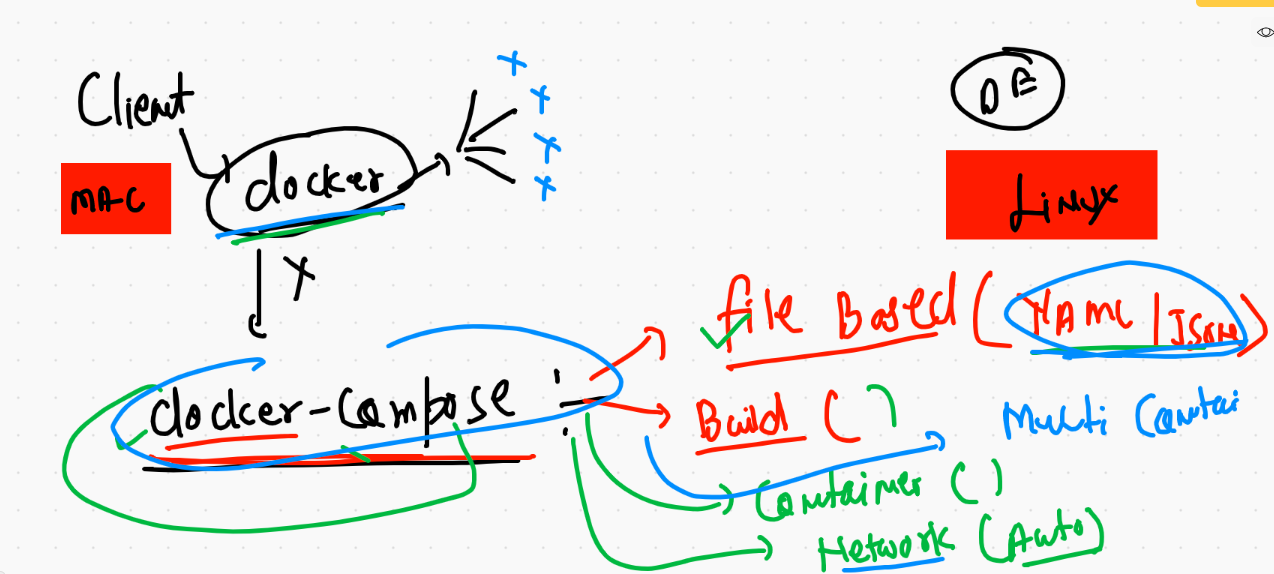 Client
docker
MAC
X
DE
Linux
docker-compose :
File Based (YAML | JSON)
Build ( )
Multi Contai
Container ( )
Network (Auto)